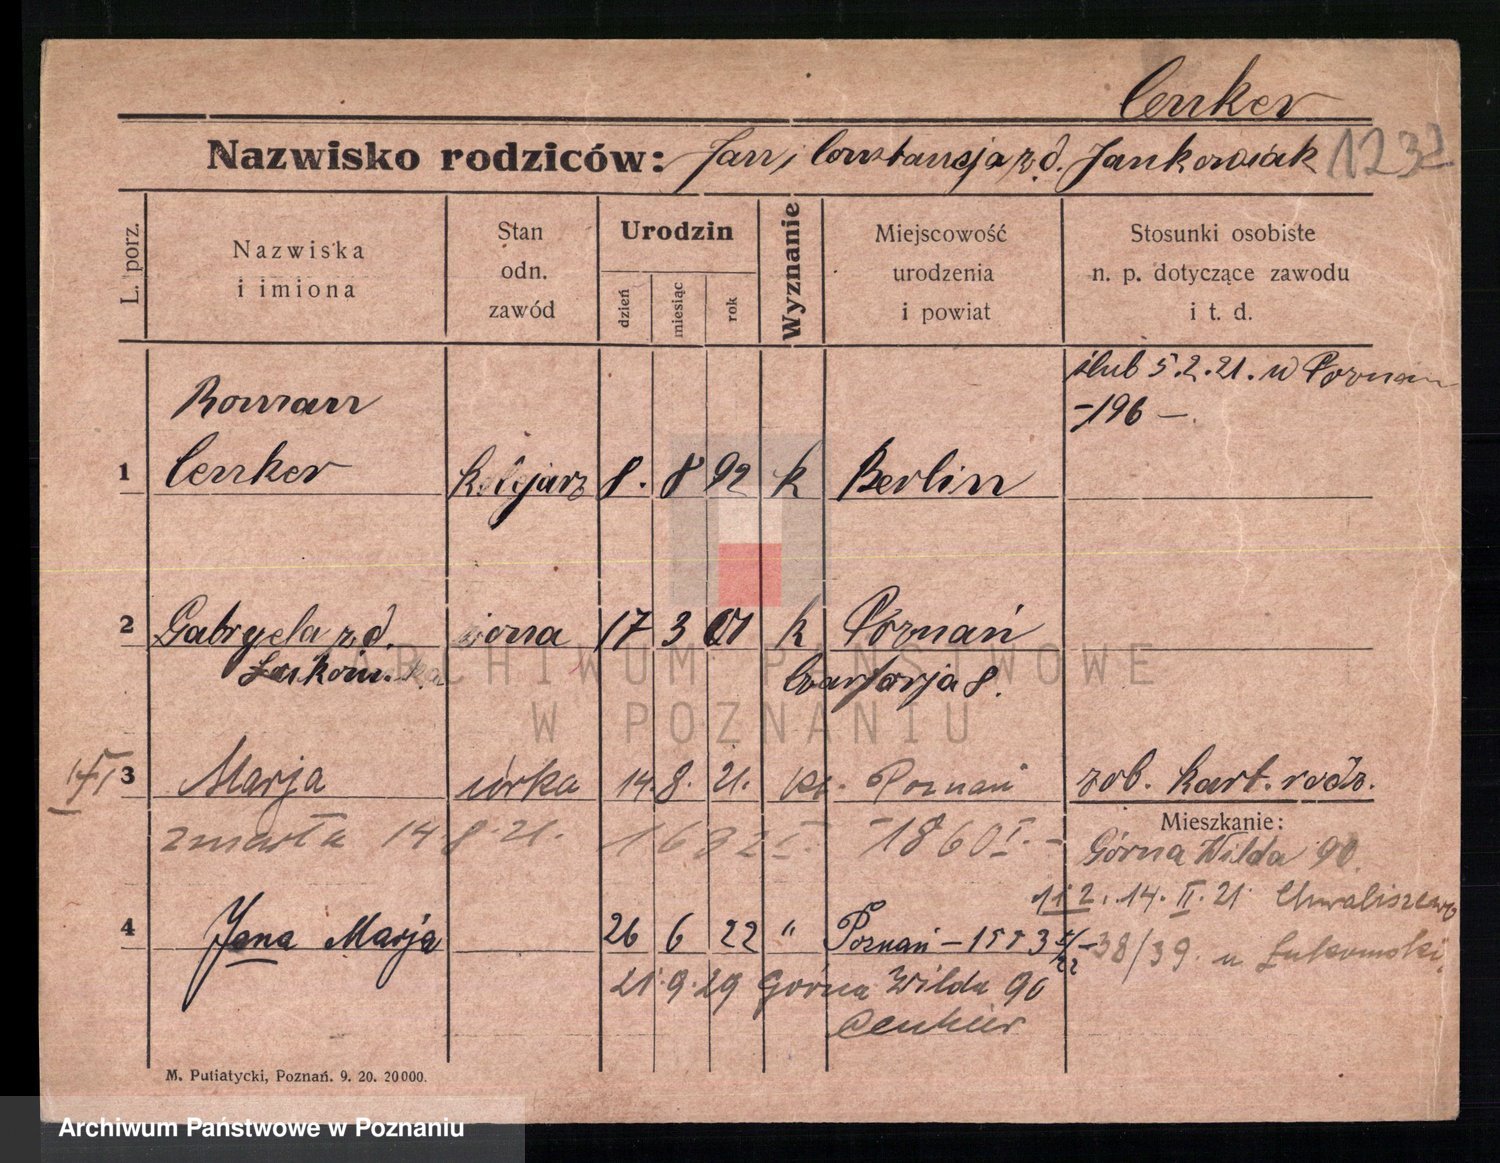 Cenker
Nazwisko rodziców: Jan i Constancja z d. Jankowiak 1232
L. porz.
Nazwiska
i imiona
Stan
odn.
zawód
Urodzin
dzień
miesiąc
rok
Wyznanie
Miejscowość
urodzenia
i powiat
Stosunki osobiste
n. p. dotyczące zawodu
i t. d.
ślub 5.2.21. w Poznan
-196-.
Roman
1 Cenker kolejarz 8. 8 92 k Berlin
2 Gabryela z d. żona 17 3 01 k Poznań
8.
3 Marja córka 14. 8. 21. Poznań zob. kart. rodz.
zmarła 14 8. 21. 1632 I. -1860 I.-
Mieszkanie:
Górna Wilda 90.
112. 14. II. 21 Chwaliszewo
4 Jana Marja 26 6 22 " Poznań
38/39. u Łukomski
21. 9. 29 Górna Wilda 90
M. Putiatycki, Poznań. 9. 20. 20000.
ARCHIWUM PAŃSTWOWE
W POZNANIU
Archiwum Państwowe w Poznaniu